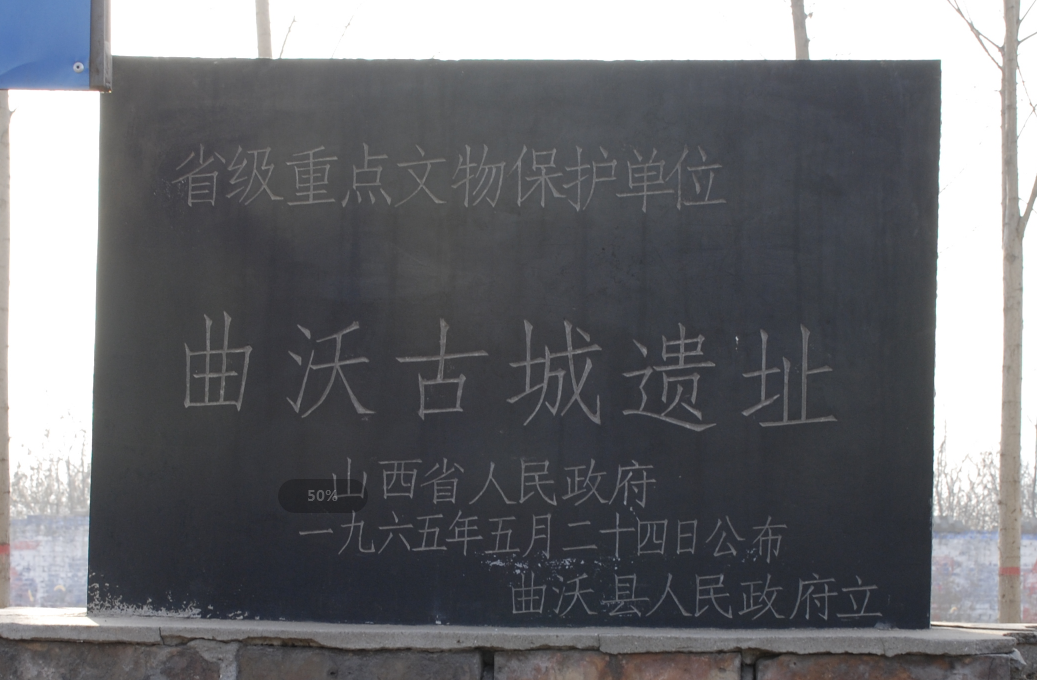 省级重点文物保护单位
曲沃古城遗址
山西省人民政府
50%
一九六五年五月二十四日公布
曲沃县人民政府立